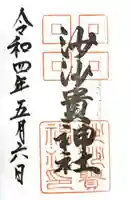 沙沙貴神社
令和四年五月六日